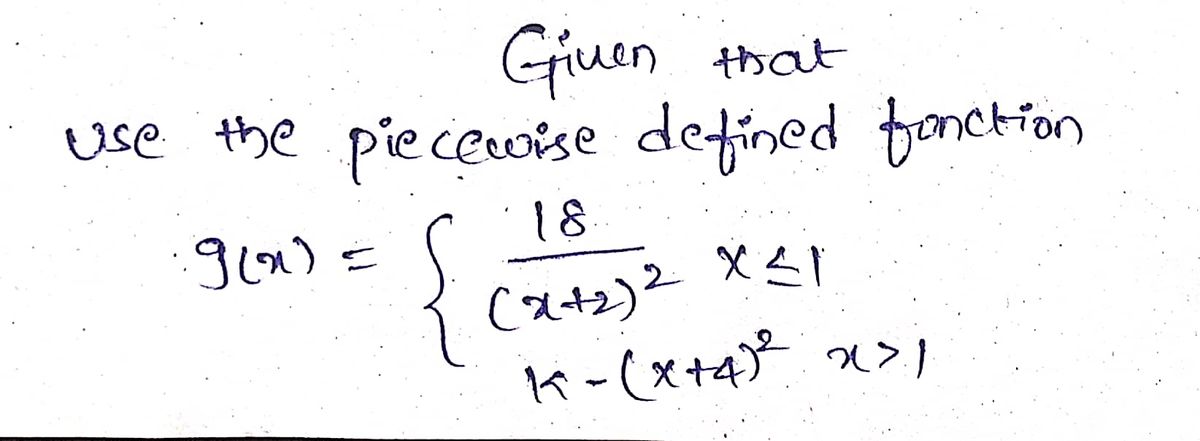 Given that
use the piecewise defined fonction
g(x) = { 18/(x+2)² x ≤ 1
K - (x+4)² x > 1